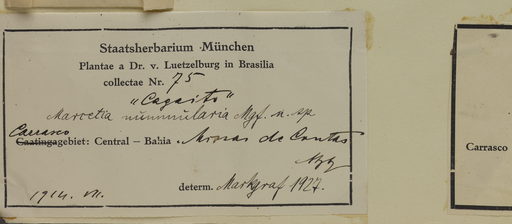 Staatsherbarium München
Plantae a Dr. v. Luetzelburg in Brasilia
collectae Nr. 75
"Cagaito"
Marcetia nummularia Mgf. n. sp
Carrasco
Caatingagebiet: Central – Bahia. de Contas
determ. Markgraf 1927.
1914. VII.
Carrasco